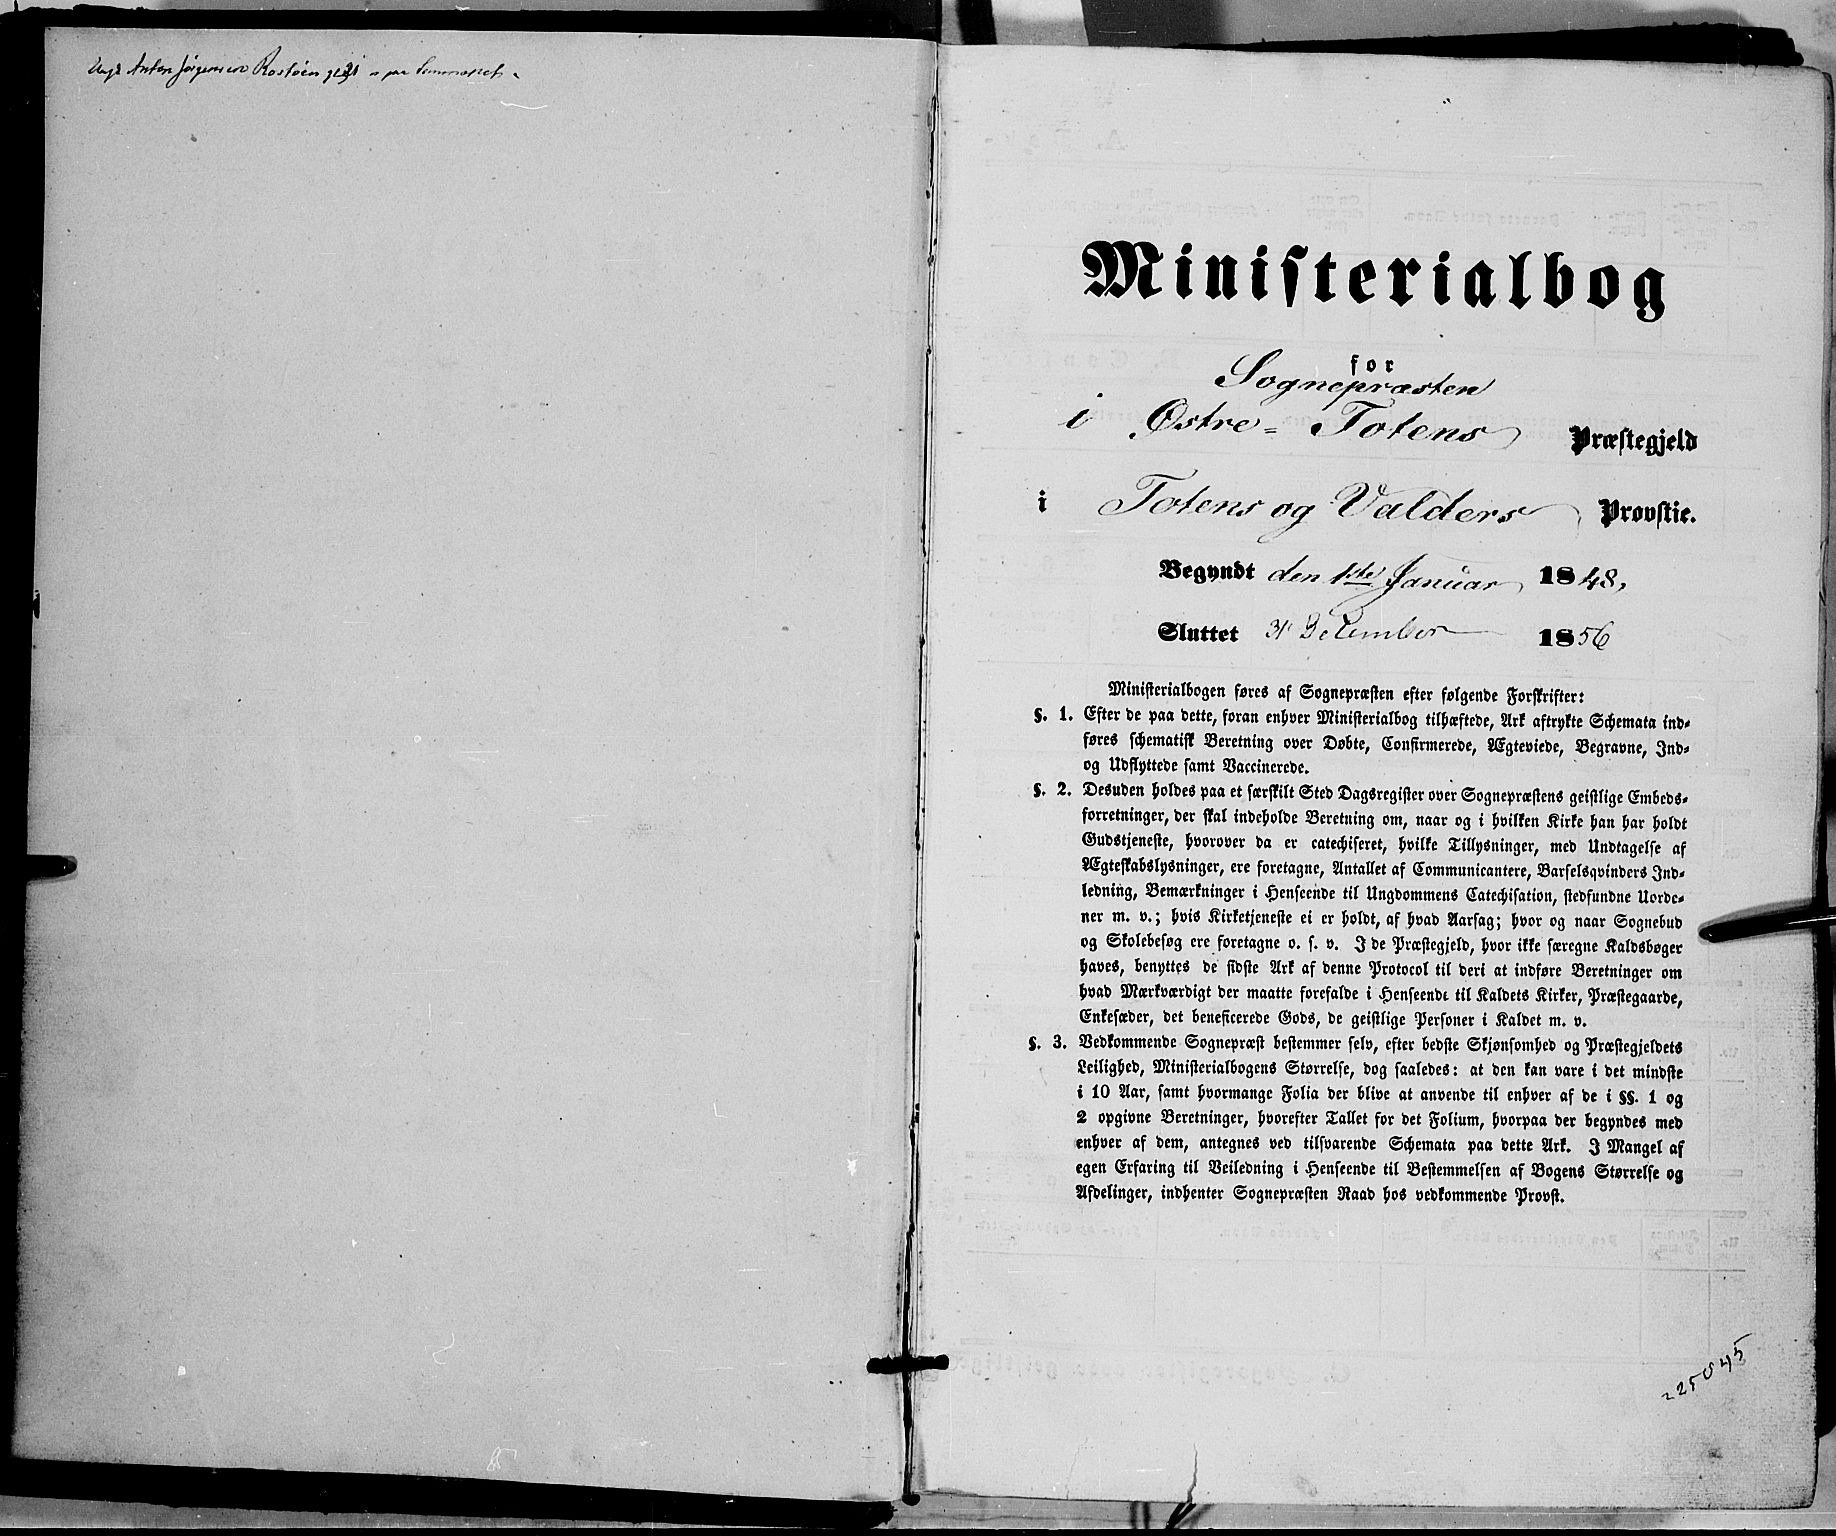 Anton Jørgensen
Ministerialbog
for
Sognepræsten
i Østre-Totens Præstegjeld
i Totens og Valders Provstie.
Begyndt den 1ste Januar 1848,
Sluttet 31 December 1856
Ministerialbogen føres af Sognepræsten efter følgende Forskrifter:
§. 1. Efter de paa dette, foran enhver Ministerialbog tilhæftede, Ark aftrykte Schemata ind-
føres schematisk Beretning over Døbte, Confirmerede, Ægteviede, Begravne, Ind-
og Udflyttede samt Vaccinerede.
§. 2. Desuden holdes paa et særskilt Sted Dagsregister over Sognepræstens geistlige Embeds-
forretninger, der skal indeholde Beretning om, naar og i hvilken Kirke han har holdt
Gudstjeneste, hvorover da er catechiseret, hvilke Tillysninger, med Undtagelse af
Ægteskabslysninger, ere foretagne, Antallet af Communicantere, Barselsqvinders Ind-
ledning, Bemærkninger i Henseende til Ungdommens Catechisation, stedfundne Uorde-
ner m. v.; hvis Kirketjeneste ei er holdt, af hvad Aarsag; hvor og naar Sognebud
og Skolebesøg ere foretagne o. s. v. I de Præstegjeld, hvor ikke særegne Kaldsbøger
haves, benyttes de sidste Ark af denne Protocol til deri at indføre Beretninger om
hvad Mærkværdigt der maatte forefalde i Henseende til Kaldets Kirker, Præstegaarde,
Enkesæder, det beneficerede Gods, de geistlige Personer i Kaldet m. v.
§. 3. Vedkommende Sognepræst bestemmer selv, efter bedste Skjønsomhed og Præstegjeldets
Leilighed, Ministerialbogens Størrelse, dog saaledes: at den kan vare i det mindste
i 10 Aar, samt hvormange Folia der blive at anvende til enhver af de i §§. 1 og
2 opgivne Beretninger, hvorefter Tallet for det Folium, hvorpaa der begyndes med
enhver af dem, antegnes ved tilsvarende Schemata paa dette Ark. I Mangel af
egen Erfaring til Veiledning i Henseende til Bestemmelsen af Bogens Størrelse og
Afdelinger, indhenter Sognepræsten Raad hos vedkommende Provst.